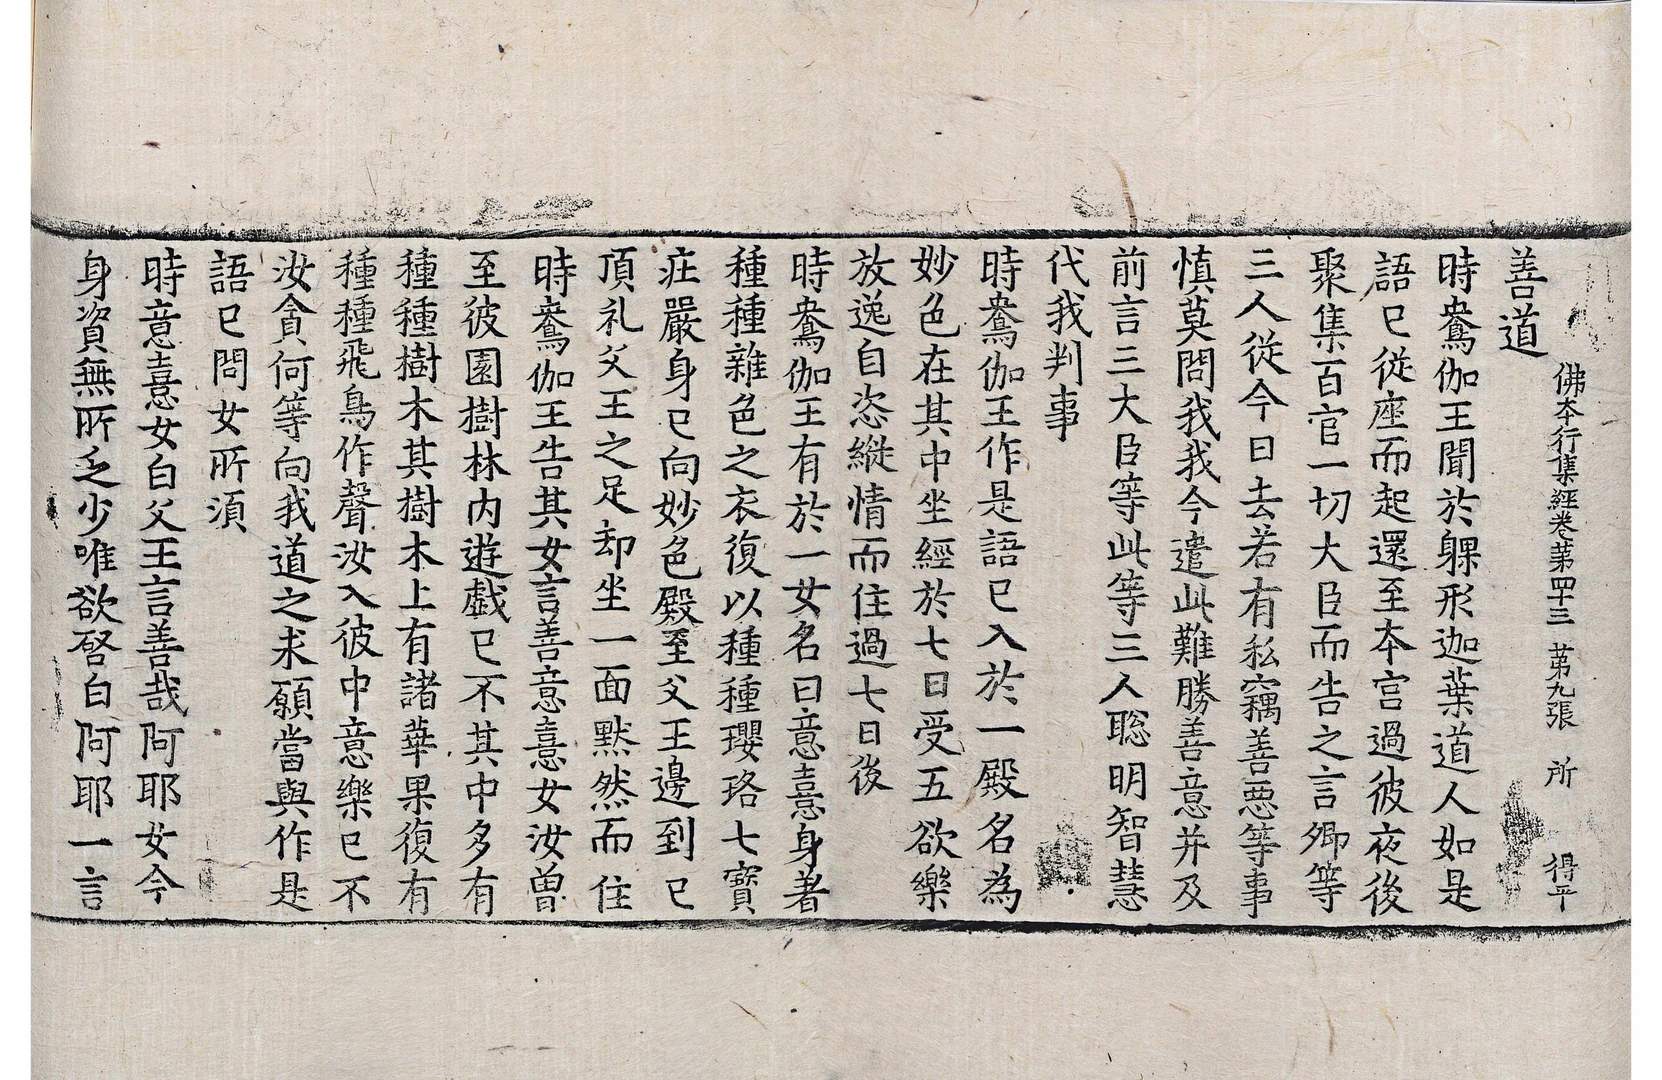 佛本行集經卷第四十三 第九張 所 得平
善道
時鴦伽王聞於躶形迦葉道人如是
語已從座而起還至本宫過彼夜後
聚集百官一切大臣而告之言卿等
三人從今日去若有私竊善惡等事
慎莫問我我今遣此難勝善意并及
前言三大臣等此等三人聡明智慧
代我判事
時鴦伽王作是語已入於一殿名為
妙色在其中坐經於七日受五欲樂
放逸自恣縱情而住過七日後
時鴦伽王有於一女名曰意憙身著
種種雜色之衣復以種種瓔珞七寳
莊嚴身已向妙色殿至父王邊到已
頂礼父王之足却坐一面黙然而住
時鴦伽王告其女言善意憙女汝曽
至彼園樹林内遊戱已不其中多有
種種樹木其樹木上有諸華果復有
種種飛鳥作聲汝入彼中意樂已不
汝貪何等向我道之求願當與作是
語已問女所湏
時意憙女白父王言善哉阿耶女今
身資無所乏少唯欲啓白阿耶一言